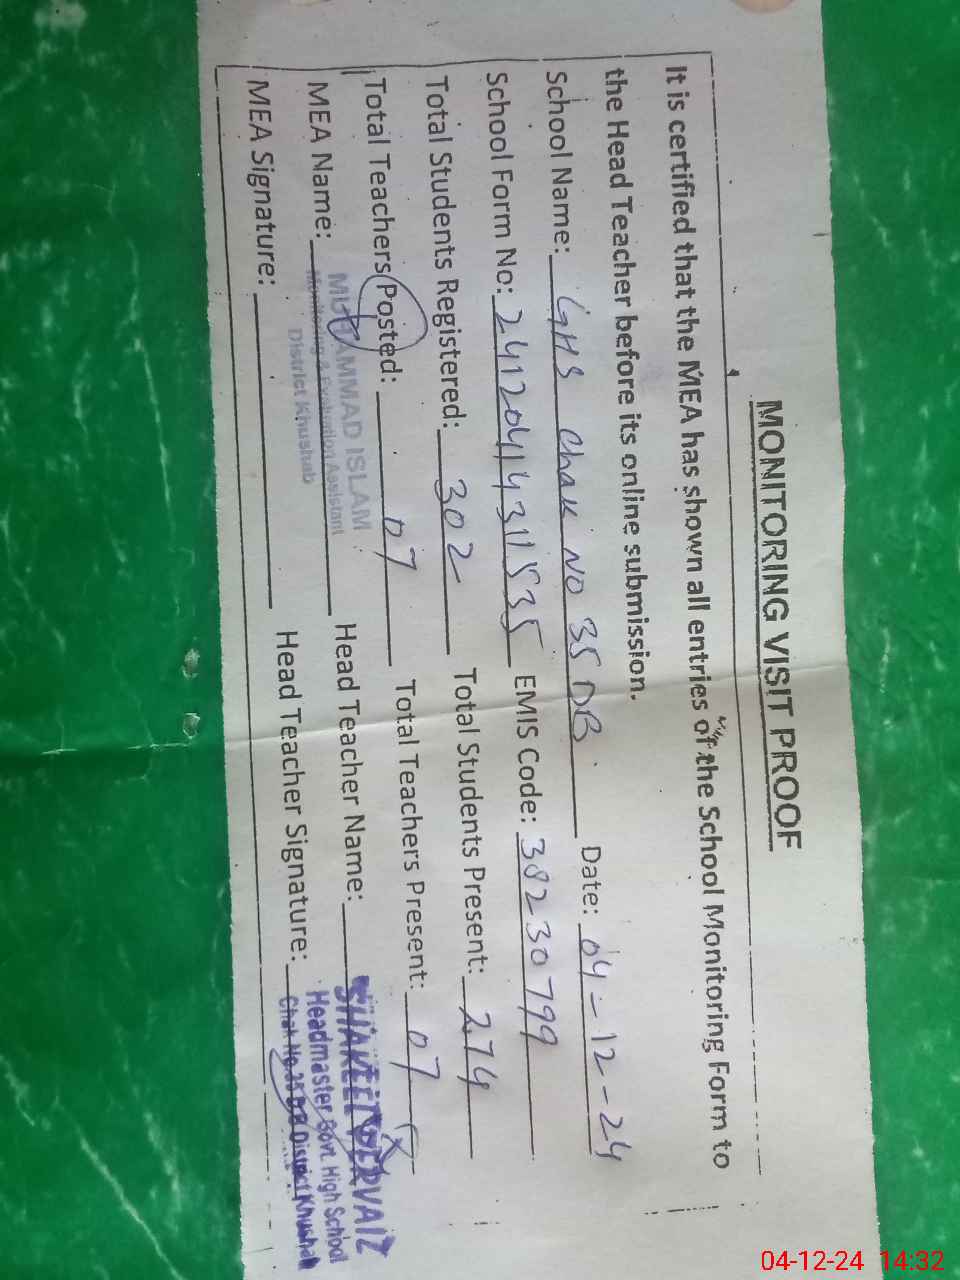 MONITORING VISIT PROOF
It is certified that the MEA has shown all entries of the School Monitoring Form to
the Head Teacher before its online submission.
School Name: GHS Chak NO 35 DB Date: 04-12-24
School Form No: 24120414311535 EMIS Code: 38230799
Total Students Registered: 302 Total Students Present: 274
Total Teachers Posted: 07 Total Teachers Present: 07
MEA Name: MUHAMMAD ISLAM Head Teacher Name: SHAKEEL PERVAIZ
Monitoring & Evaluation Assistant Headmaster Govt. High School
District Khushab Chak No.35 D.B District Khushab
MEA Signature: Head Teacher Signature:
04-12-24 14:32